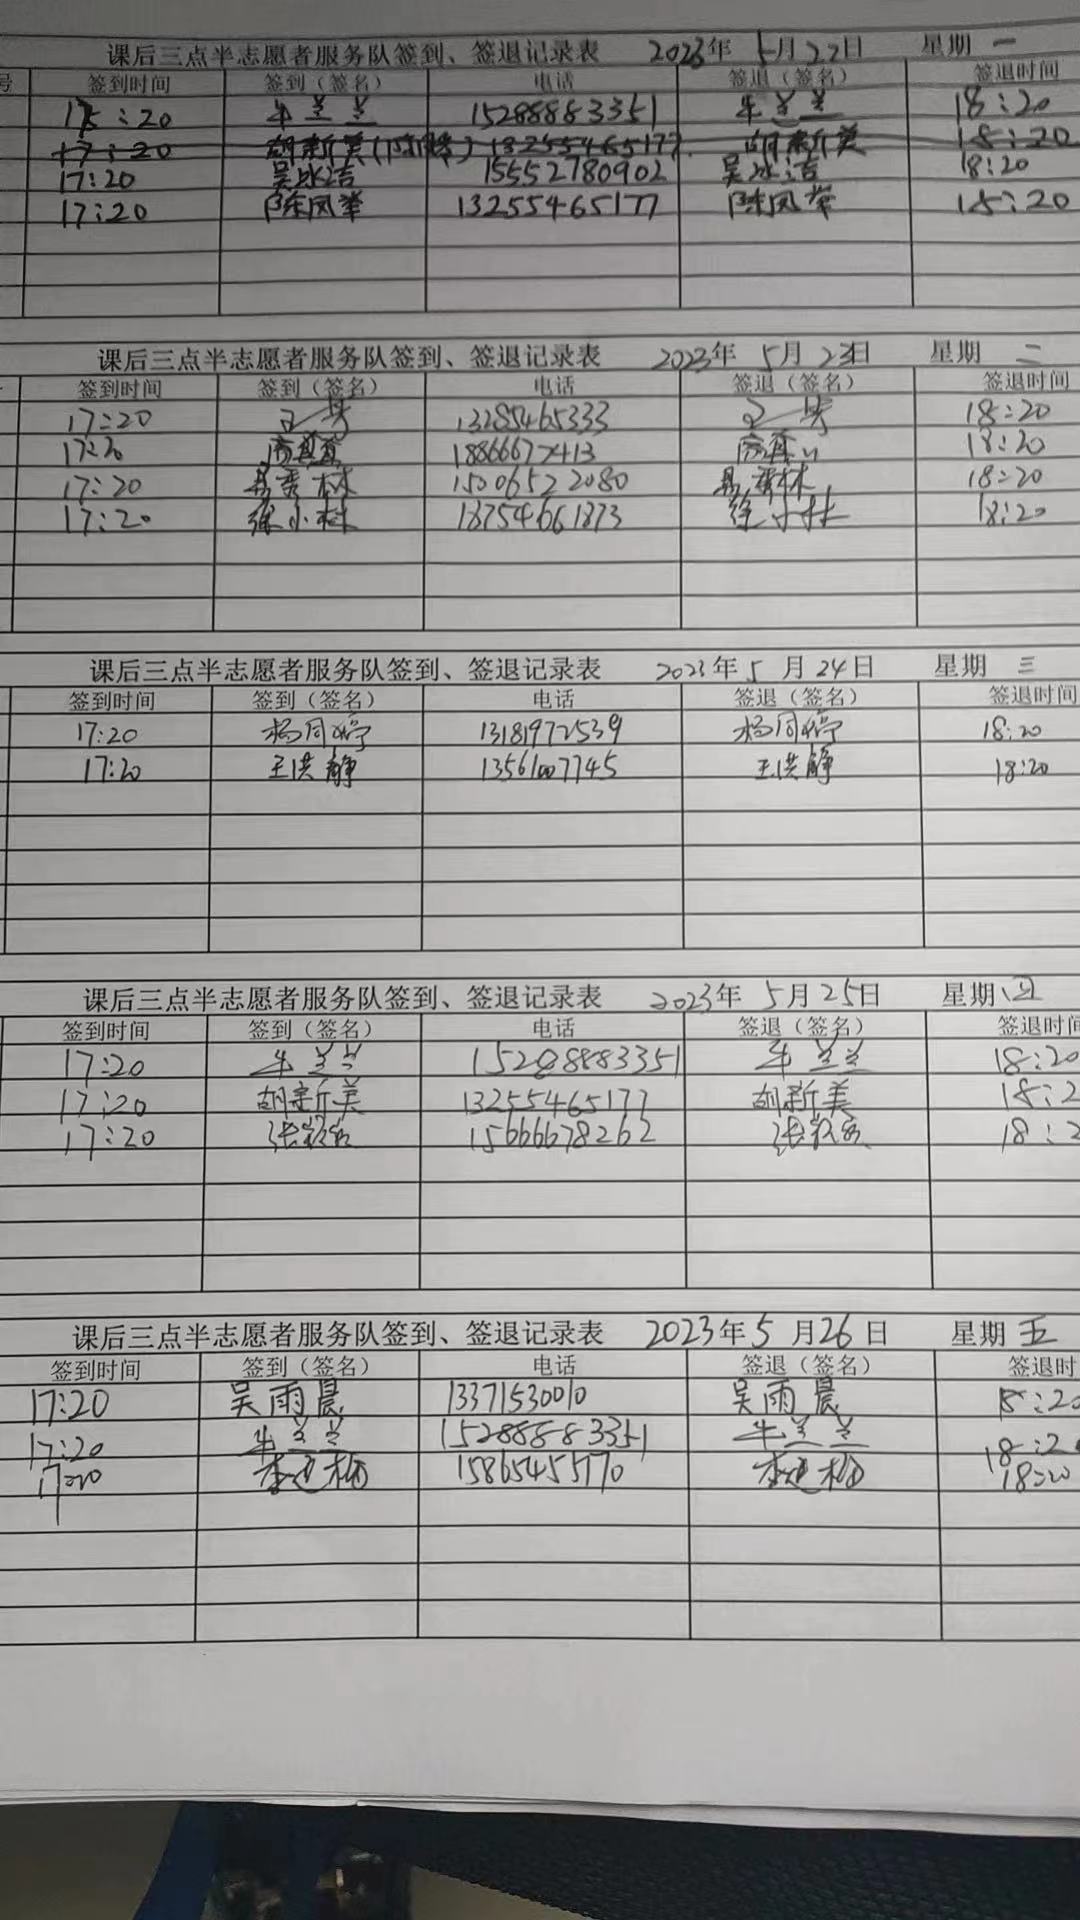 课后三点半志愿者服务队签到、签退记录表 2023年 5月22日 星期 一
号 签到时间 签到（签名） 电话 签退（签名） 签退时间
17:20 牛兰兰 15288883351 牛兰兰 18:20
17:20 胡新美 13255465177 胡新美 18:20
17:20 吴冰洁 15552780902 吴冰洁 18:20
17:20 陈凤举 13255465177 陈凤举 18:20
课后三点半志愿者服务队签到、签退记录表 2023年 5月23日 星期 二
签到时间 签到（签名） 电话 签退（签名） 签退时间
17:20 13285465333 18:20
17:20 18866677413 18:20
17:20 林 15006522080 林 18:20
17:20 徐小林 18754661873 徐小林 18:20
课后三点半志愿者服务队签到、签退记录表 2023年 5月24日 星期 三
签到时间 签到（签名） 电话 签退（签名） 签退时间
17:20 杨同婷 13181972539 杨同婷 18:20
17:20 王洪静 13561007745 王洪静 18:20
课后三点半志愿者服务队签到、签退记录表 2023年 5月25日 星期 四
签到时间 签到（签名） 电话 签退（签名） 签退时间
17:20 牛兰兰 15288883351 牛兰兰 18:20
17:20 胡新美 13255465177 胡新美 18:2
17:20 张 15666678262 张 18:2
课后三点半志愿者服务队签到、签退记录表 2023年5月26日 星期 五
签到时间 签到（签名） 电话 签退（签名） 签退时
17:20 吴雨晨 13371530010 吴雨晨 18:20
17:20 牛兰兰 15288883351 牛兰兰 18:20
17:20 李 15865455170 李 18:20